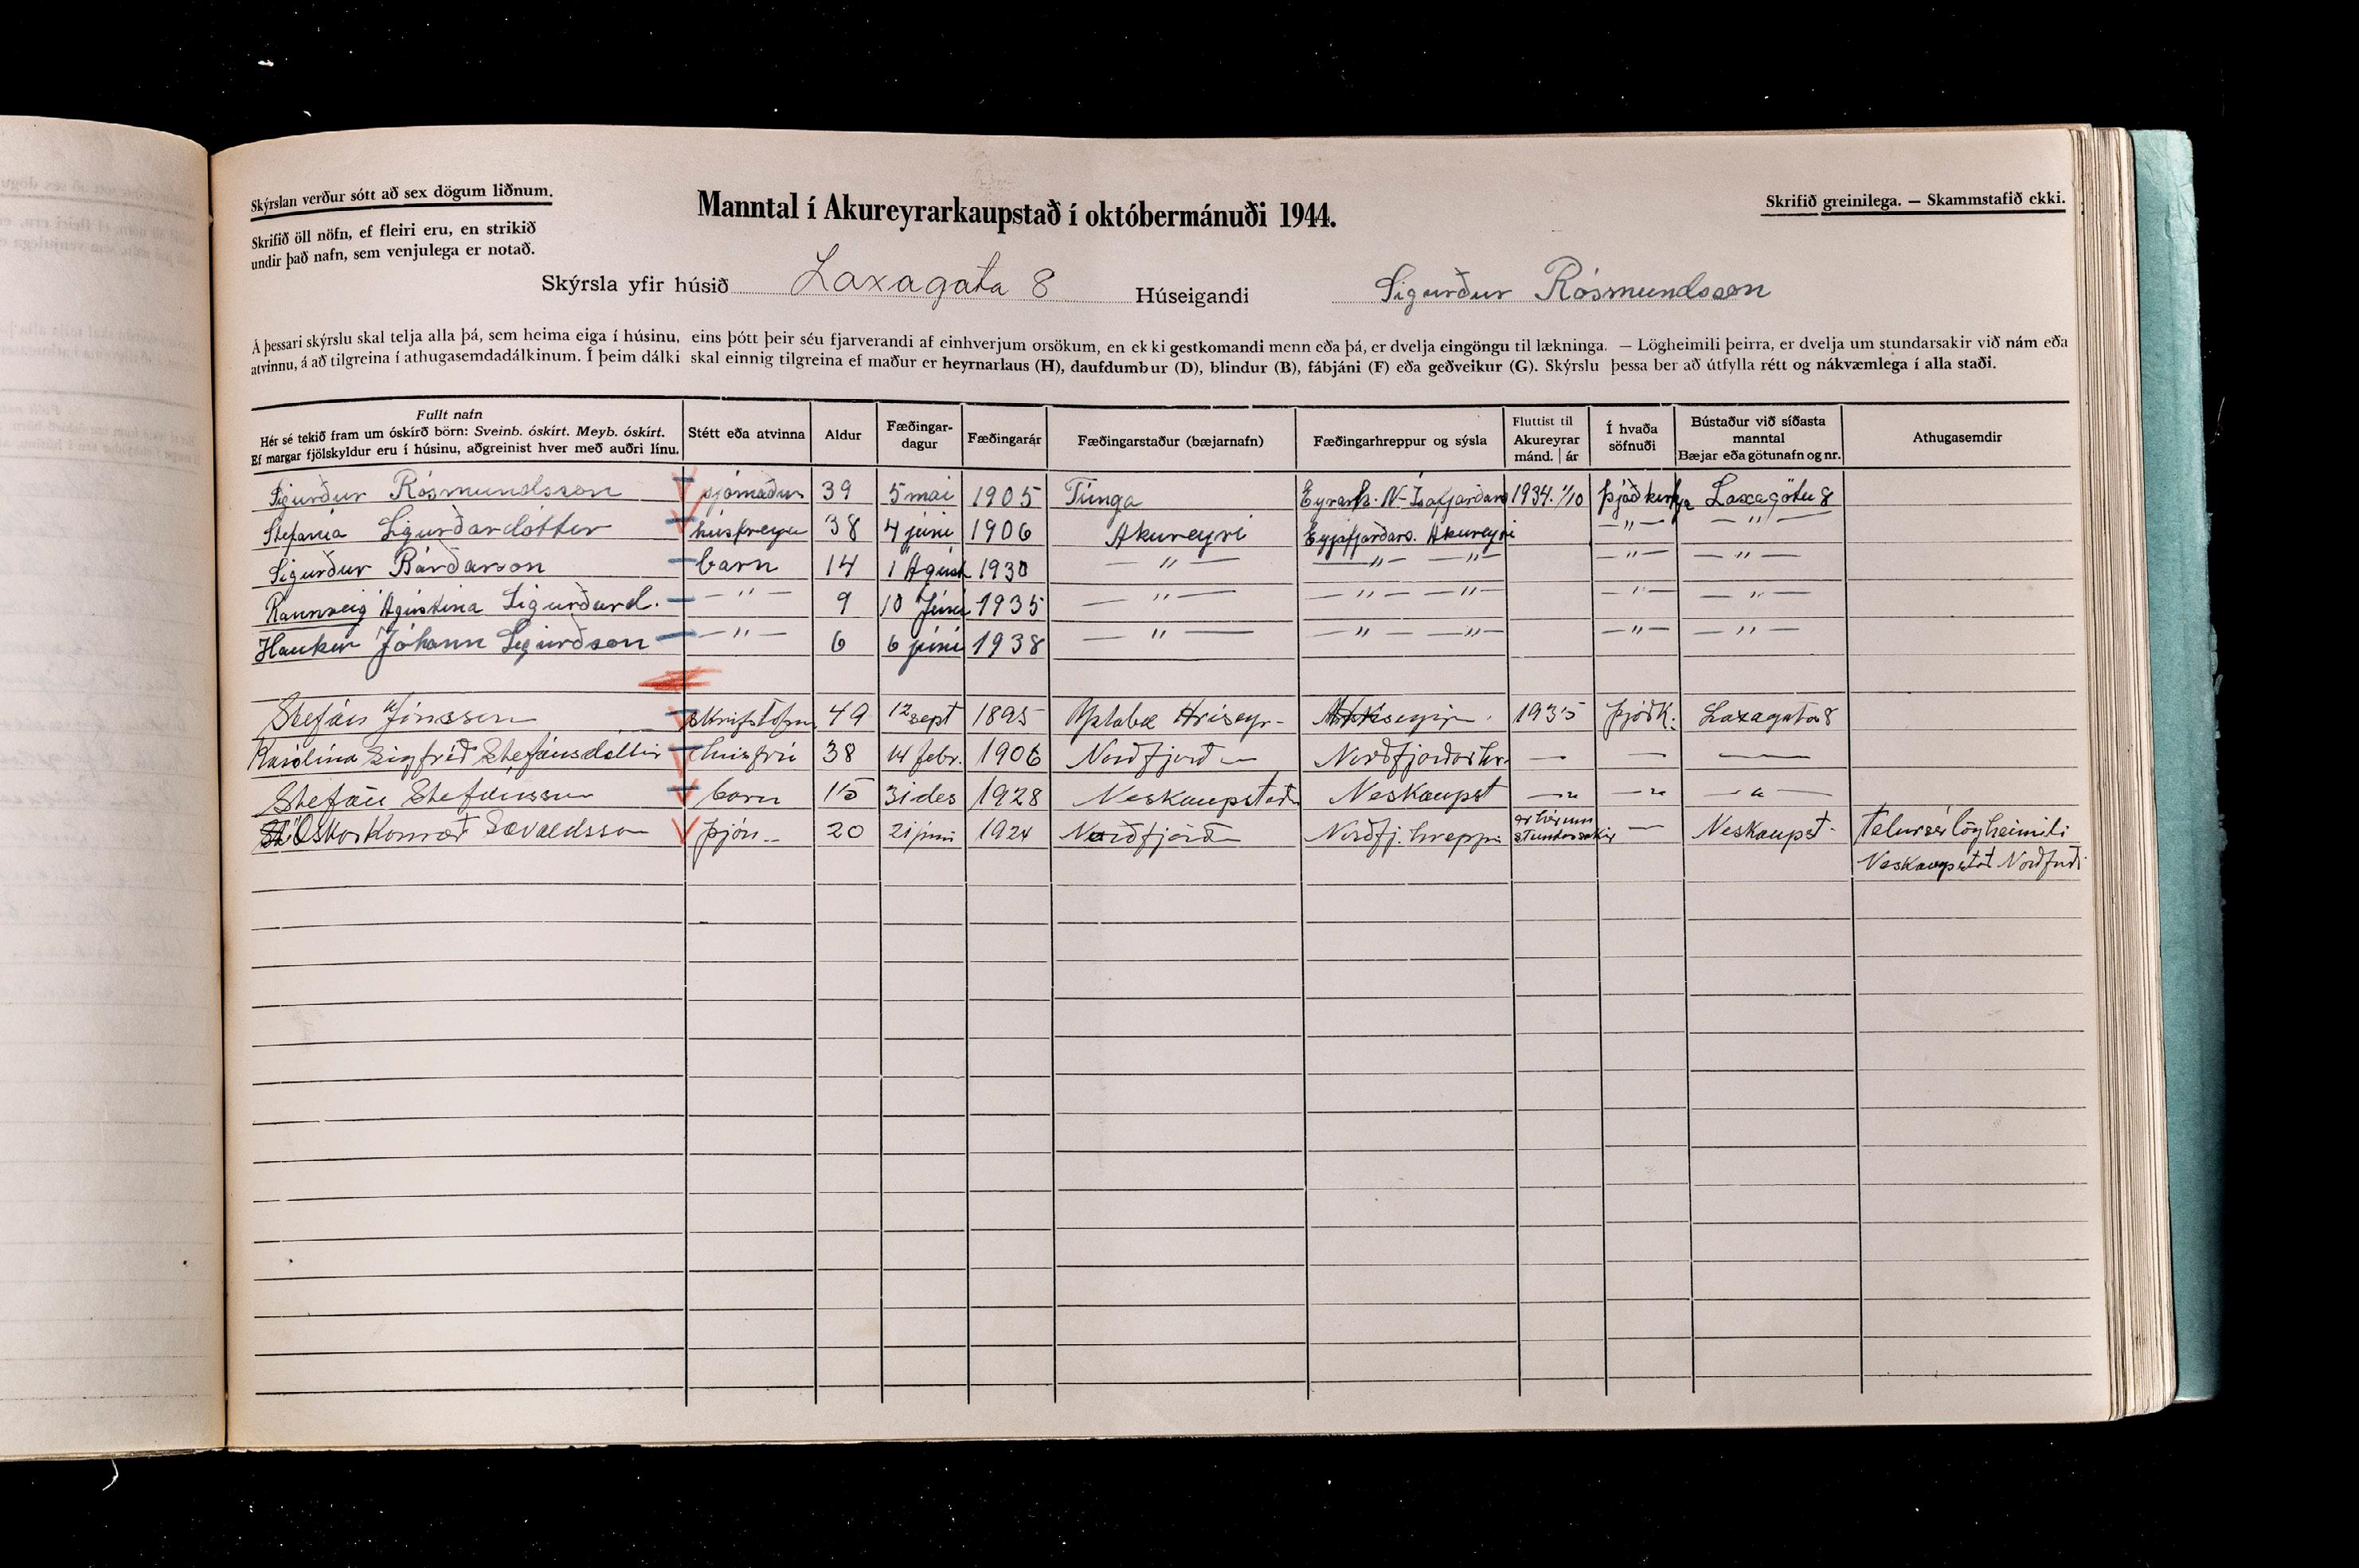 Skýrslan verður sótt að sex dögum liðnum.
Skrifið öll nöfn, ef fleiri eru, en strikið
undir það nafn, sem venjulega er notað.
Manntal í Akureyrarkaupstað í októbermánuði 1944.
Skrifið greinilega. — Skammstafið ekki.
Skýrsla yfir húsið Laxagata 8 Húseigandi Sigurður Rósmundsson
Á þessari skýrslu skal telja alla þá, sem heima eiga í húsinu, eins þótt þeir séu fjarverandi af einhverjum orsökum, en ekki gestkomandi menn eða þá, er dvelja eingöngu til lækninga. — Lögheimili þeirra, er dvelja um stundarsakir við nám eða
atvinnu, á að tilgreina í athugasemdadálkinum. Í þeim dálki skal einnig tilgreina ef maður er heyrnarlaus (H), daufdumbur (D), blindur (B), fábjáni (F) eða geðveikur (G). Skýrslu þessa ber að útfylla rétt og nákvæmlega í alla staði.
Fullt nafn
Hér sé tekið fram um óskírð börn: Sveinb. óskírt. Meyb. óskírt.
Ef margar fjölskyldur eru í húsinu, aðgreinist hver með auðri línu.
Stétt eða atvinna
Aldur
Fæðingar-
dagur
Fæðingarár
Fæðingarstaður (bæjarnafn)
Fæðingarhreppur og sýsla
Fluttist til
Akureyrar
mánd. | ár
Í hvaða
söfnuði
Bústaður við síðasta
manntal
Bæjar eða götunafn og nr.
Athugasemdir
Sigurður Rósmundsson sjómaður 39 5 mai 1905 Tunga Eyrarh. N-Isafjarðars 1934. 1/10 þjóðkirkja Laxagötu 8
Stefanía Sigurðardóttir húsfreyja 38 4 júni 1906 Akureyri Eyjafjarðars. Akureyri — " — — " —
Sigurður Bárðarson barn 14 1 Agúst 1930 — " — — " — — " — — " — — " —
Rannveig Agústina Sigurðurd. — " — 9 10 Júni 1935 — " — — " — — " — — " — — " —
Haukur Jóhann Sigurðson — " — 6 6 júni 1938 — " — — " — — " — — " — — " —
Stefán Jónsson 49 12 sept 1895 Hrisey- 1935 þjóðk. Laxagata 8
Karólína Sigfríð Stefánsdóttir húsfrú 38 14 febr. 1906 Norðfjord Norðfjorðarhr. — — —
Stefán Stefánsson barn 15 31 des 1928 Neskaupstað Neskaupst — " — — " — — " —
Óskar Konráð Sævaldsson þjón 20 21 júni 1924 Norðfjörd Norðfj. hreppi er hér um — Neskaupst. Telur sér lögheimili
stundarsakir
Neskaupstað Norðfirði